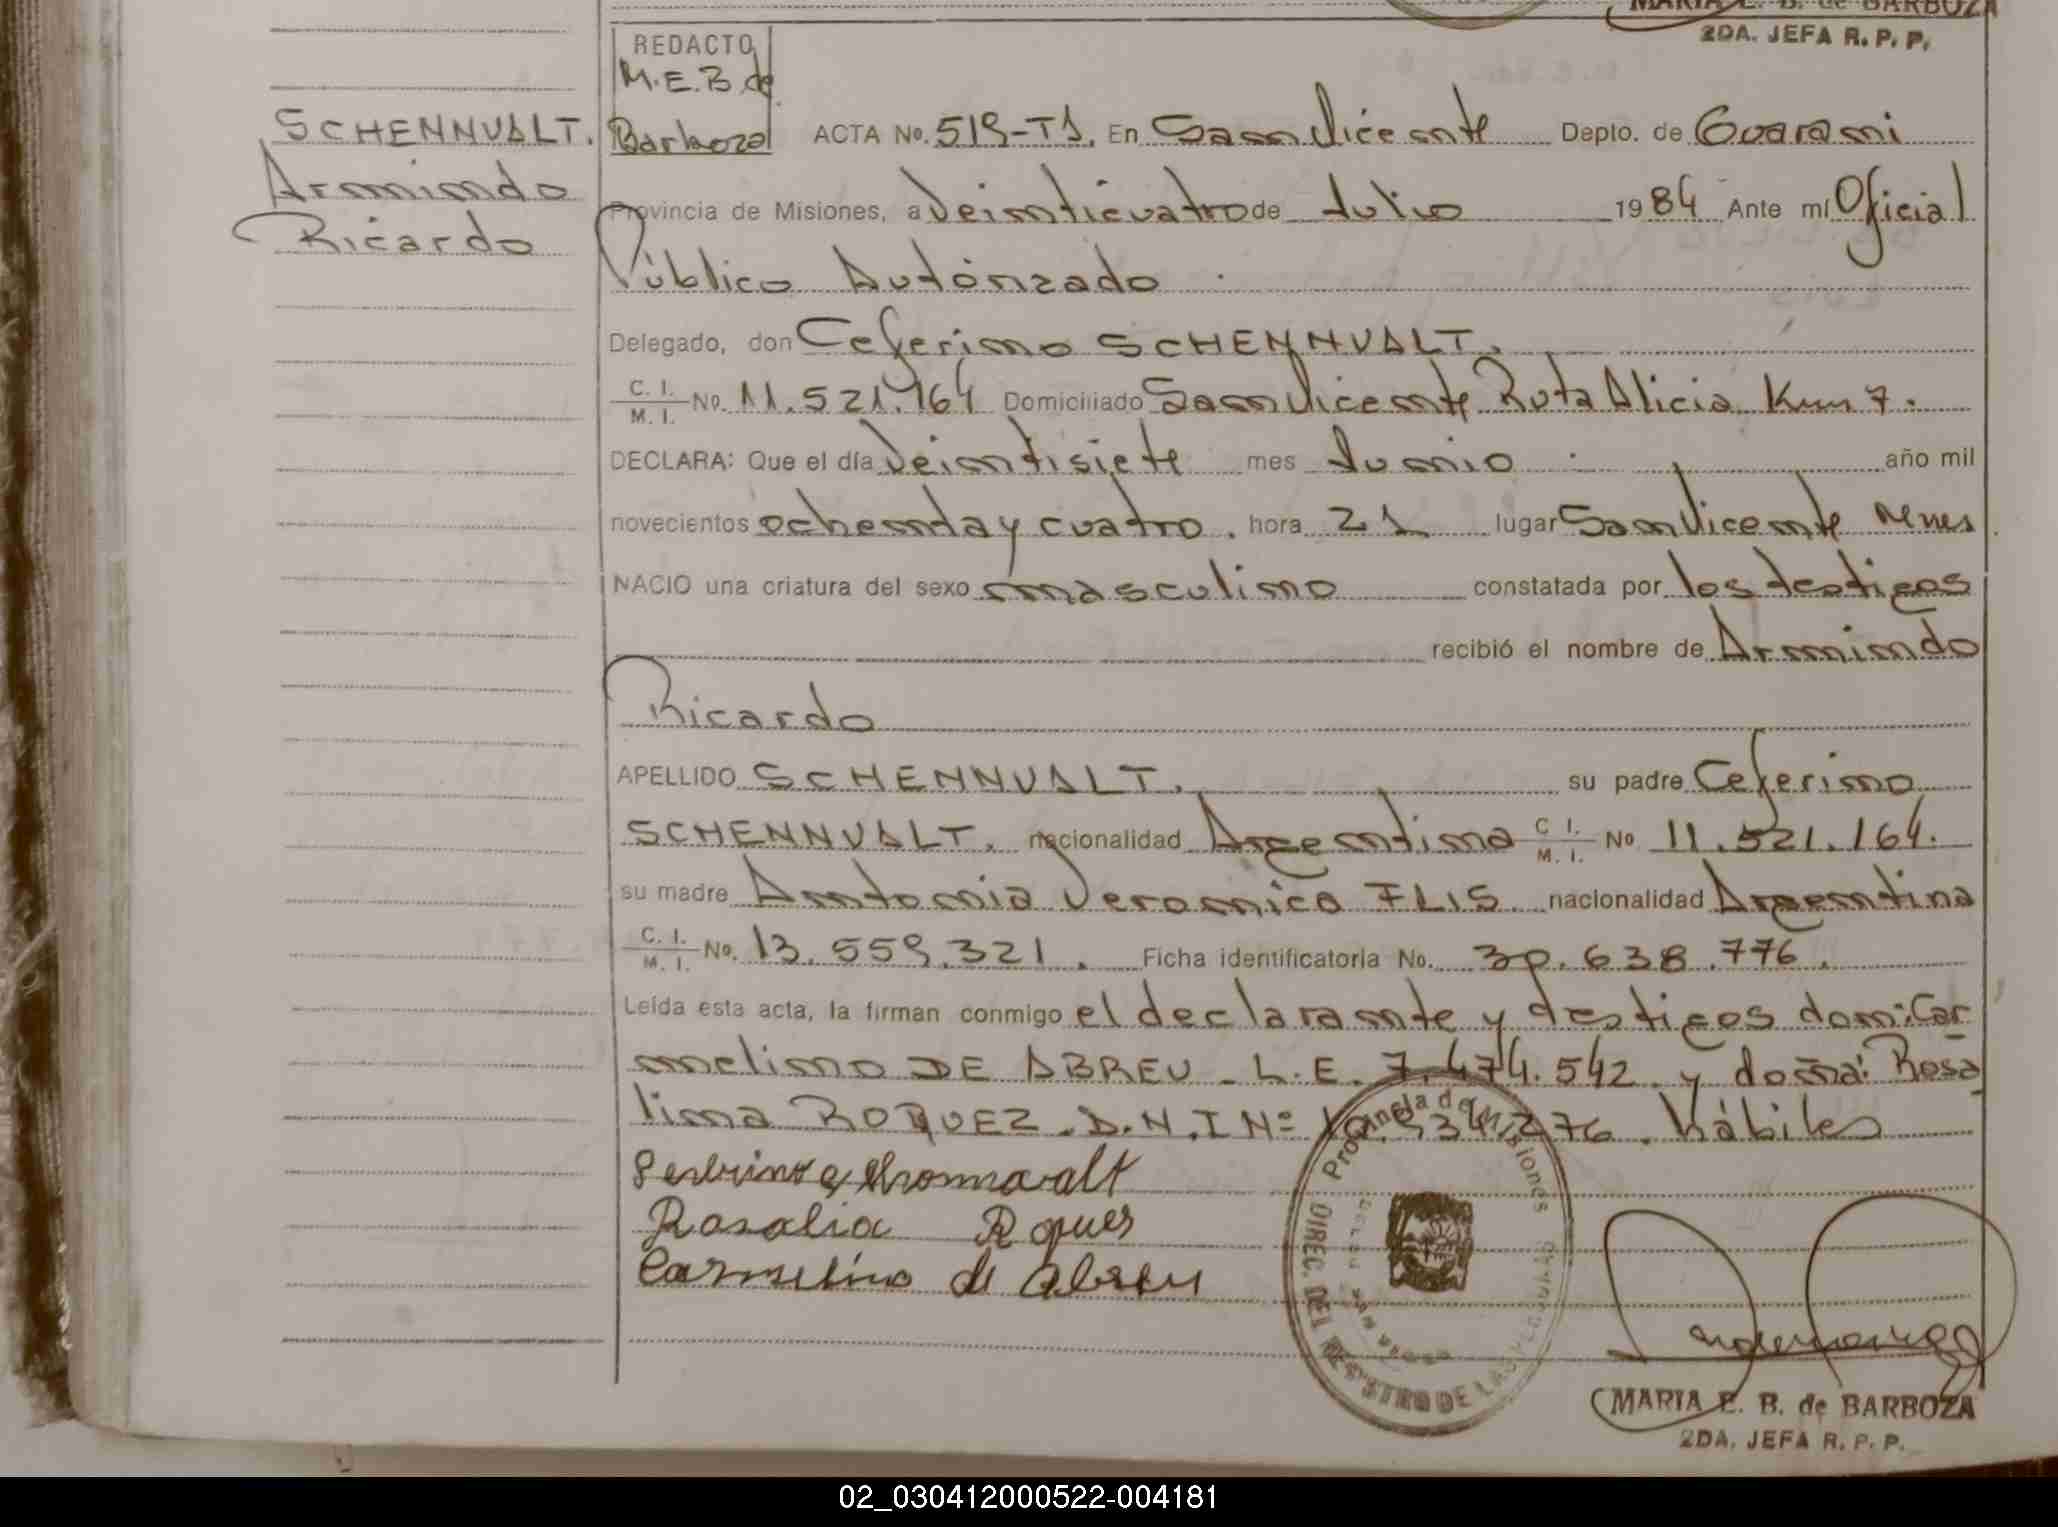 MARIA E. B. de BARBOZA
2DA. JEFA R. P. P.
REDACTO
M.E.B. de
Barboza
SCHENNVALT.
Armindo
Ricardo
ACTA No. 519-T1. En San Vicente Depto. de Guarani
Provincia de Misiones, a Veinticuatro de Julio 1984 Ante mí Oficial
Público Autórizado
Delegado, don Ceferino SCHENNVALT.
C. I. / M. I. No. 11.521.164 Domiciliado San Vicente Ruta Alicia Km 7.
DECLARA: Que el día Veintisiete mes Junio año mil
novecientos ochenta y cuatro. hora 21 lugar San Vicente Mnes
NACIO una criatura del sexo masculino constatada por los testigos
recibió el nombre de Armindo
Ricardo
APELLIDO SCHENNVALT. su padre Ceferino
SCHENNVALT. nacionalidad Argentina C I. / M. I. No 11.521.164.
su madre Antonia Veronica FLIS. nacionalidad Argentina
C. I. / M. I. No. 13.559.321. Ficha identificatoria No. 30.638.776.
Leída esta acta, la firman conmigo el declarante y testigos don: Car
melino DE ABREU - L.E. 7.474.542. y doña: Rosa
lina ROQUEZ. D.N.I Nº 276. hábiles
Rosalia Roques
Carmelino de Abreu
Provincia de Misiones
DIREC. DEL REGISTRO DE LAS
MARIA E. B. de BARBOZA
2DA. JEFA R. P. P.
02_030412000522-004181